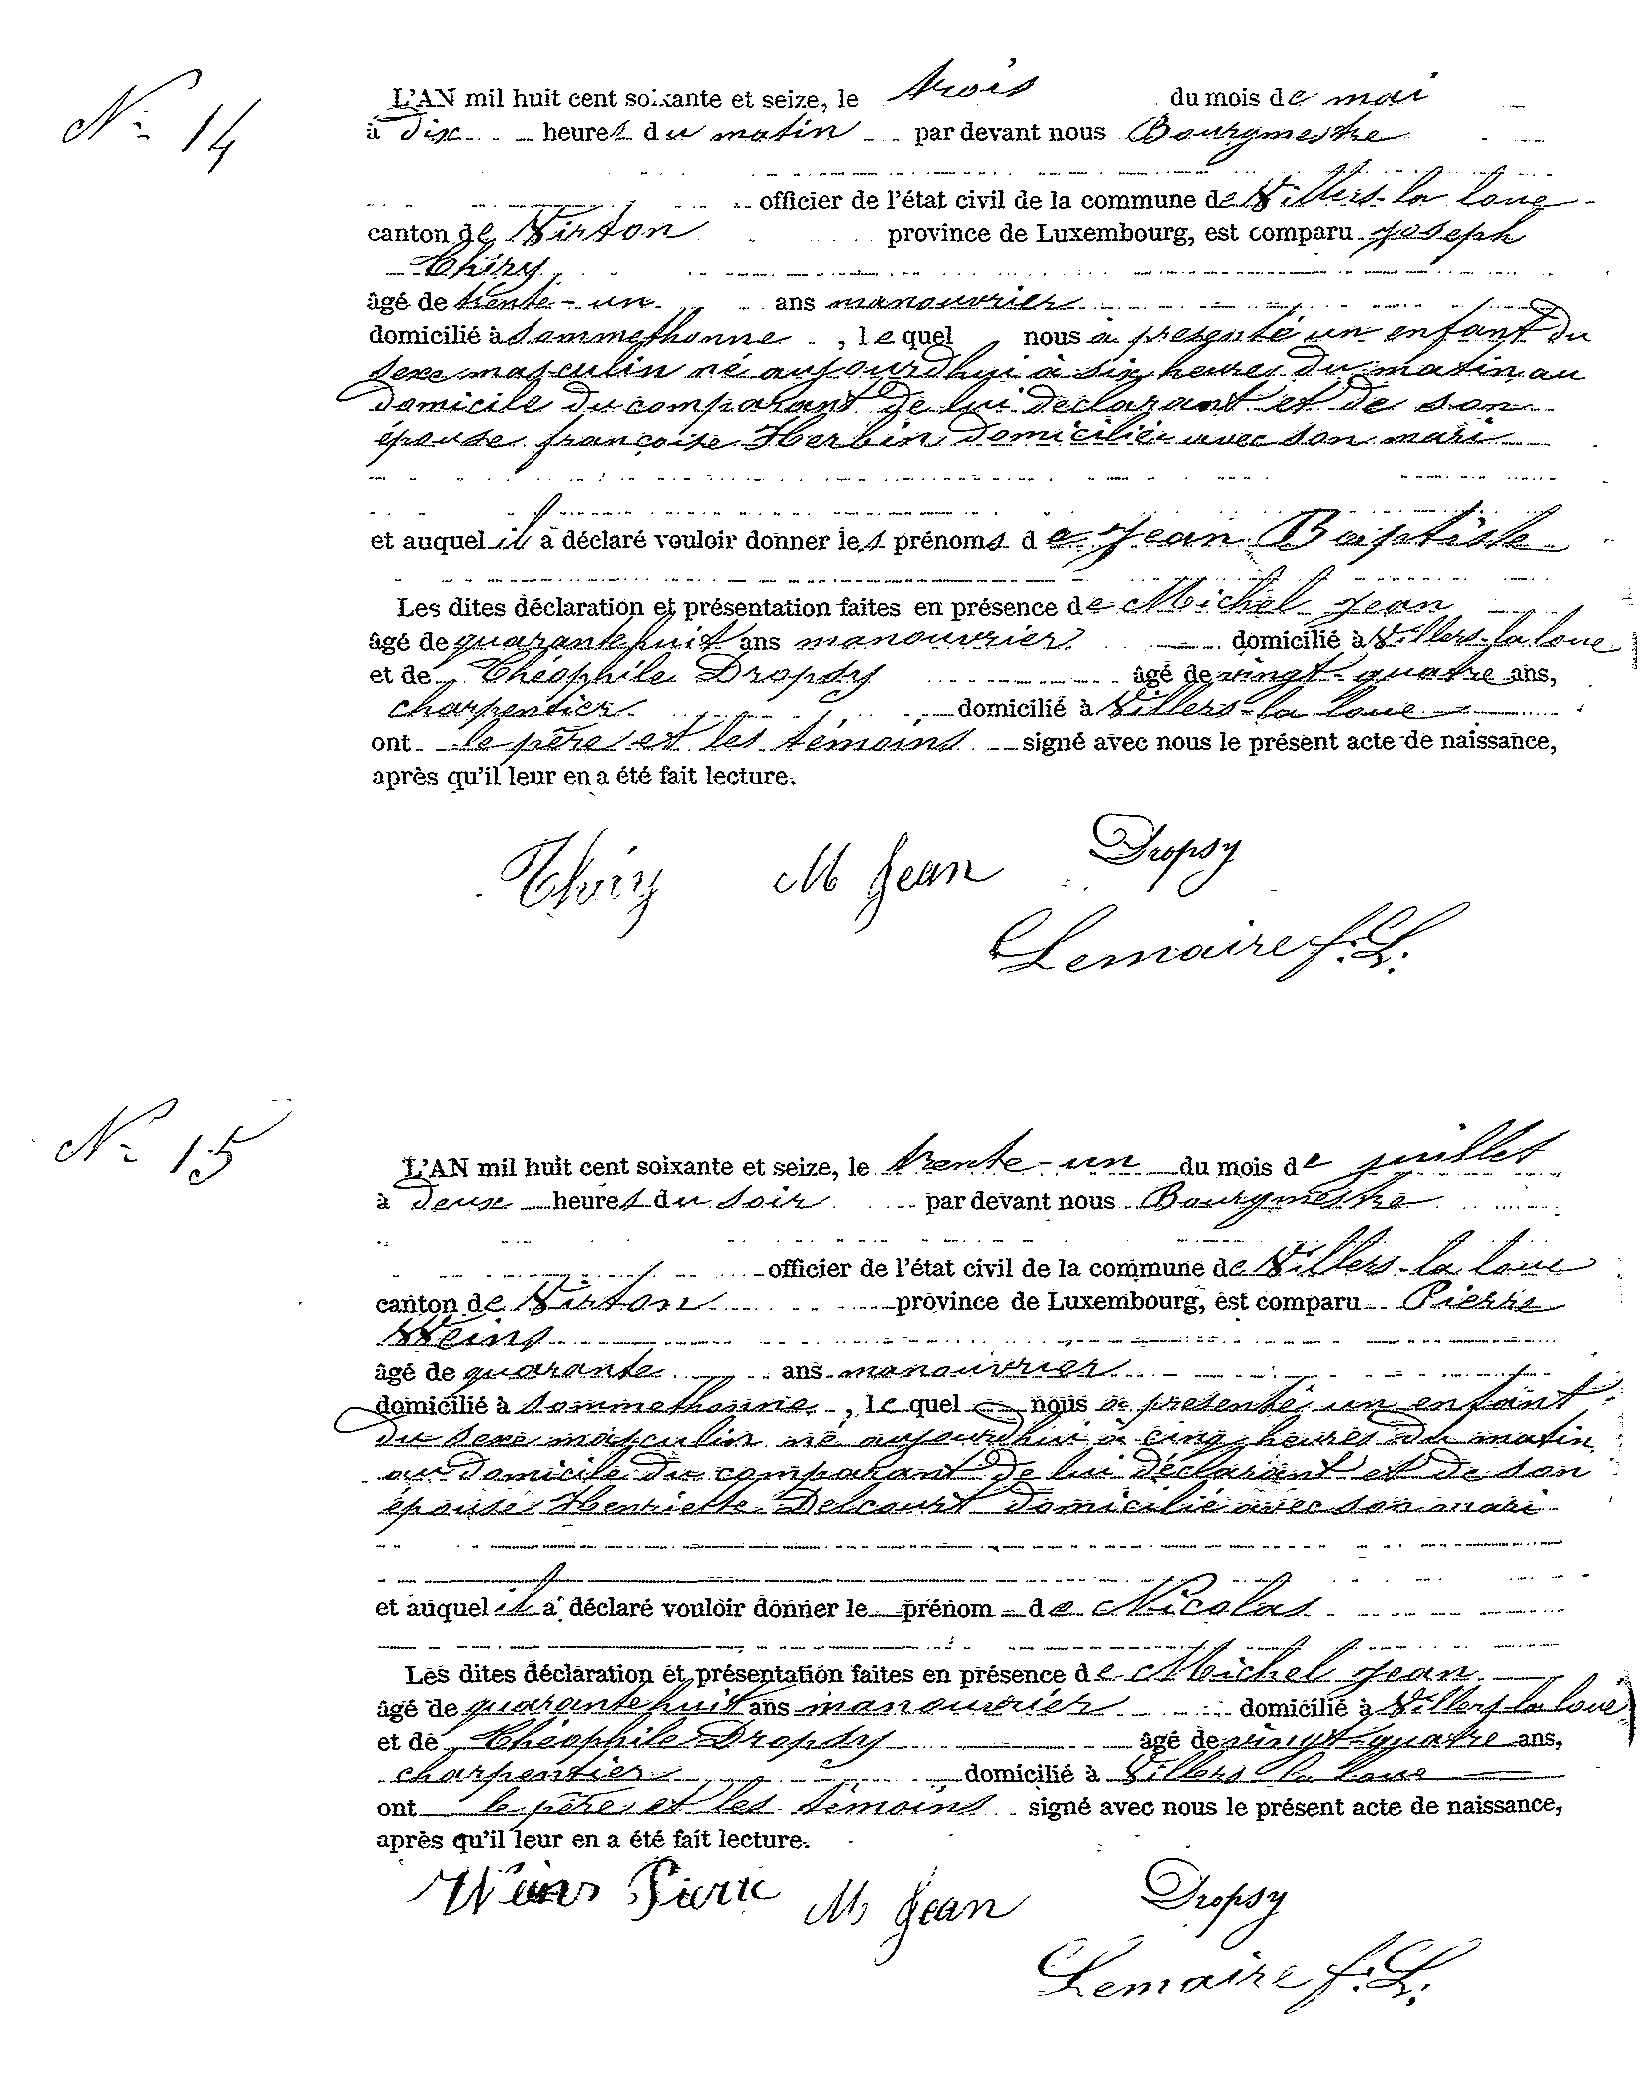 N° 14
L'AN mil huit cent soixante et seize, le trois du mois de mai
à dix heures du matin par devant nous Bourgmestre
officier de l'état civil de la commune de Villers-la loue
canton de Virton province de Luxembourg, est comparu joseph
Thiry
âgé de trente-un ans manouvrier
domicilié à sommethonne, lequel nous a presenté un enfant du
sexe masculin né aujourdhui à six heures du matin au
domicile du comparant de lui declarant et de son
épouse françoise Herbin domiciliée avec son mari
et auquel il a déclaré vouloir donner les prénoms de jean Baptiste
Les dites déclaration et présentation faites en présence de Michel jean
âgé de quarantehuit ans manouvrier domicilié à Villers-la loue
et de Théophile Dropsy âgé de vingt-quatre ans,
charpentier domicilié à Villers-la loue
ont le père et les témoins signé avec nous le présent acte de naissance,
après qu'il leur en a été fait lecture.
Thiry M Jean Dropsy
Lemaire f. L.
N° 15
L'AN mil huit cent soixante et seize, le trente-un du mois de juillet
à deux heures du soir par devant nous Bourgmestre
officier de l'état civil de la commune de Villers-la loue
canton de Virton province de Luxembourg, est comparu Pierre
Weins
âgé de quarante ans manouvrier
domicilié à sommethonne, lequel nous a presenté un enfant
du sexe masculin né aujourdhui à cinq heures du matin
au domicile du comparant de lui déclarant et de son
épouse Henriette Delcourt domicilié avec son mari
et auquel il a déclaré vouloir donner le prénom de Nicolas
Les dites déclaration et présentation faites en présence de Michel jean
âgé de quarantehuit ans manouvrier domicilié à Villers la loue
et de Théophile Dropsy âgé de vingt-quatre ans,
charpentier domicilié à Villers la loue
ont le père et les témoins signé avec nous le présent acte de naissance,
après qu'il leur en a été fait lecture.
Weins Pierre M Jean Dropsy
Lemaire f. L.